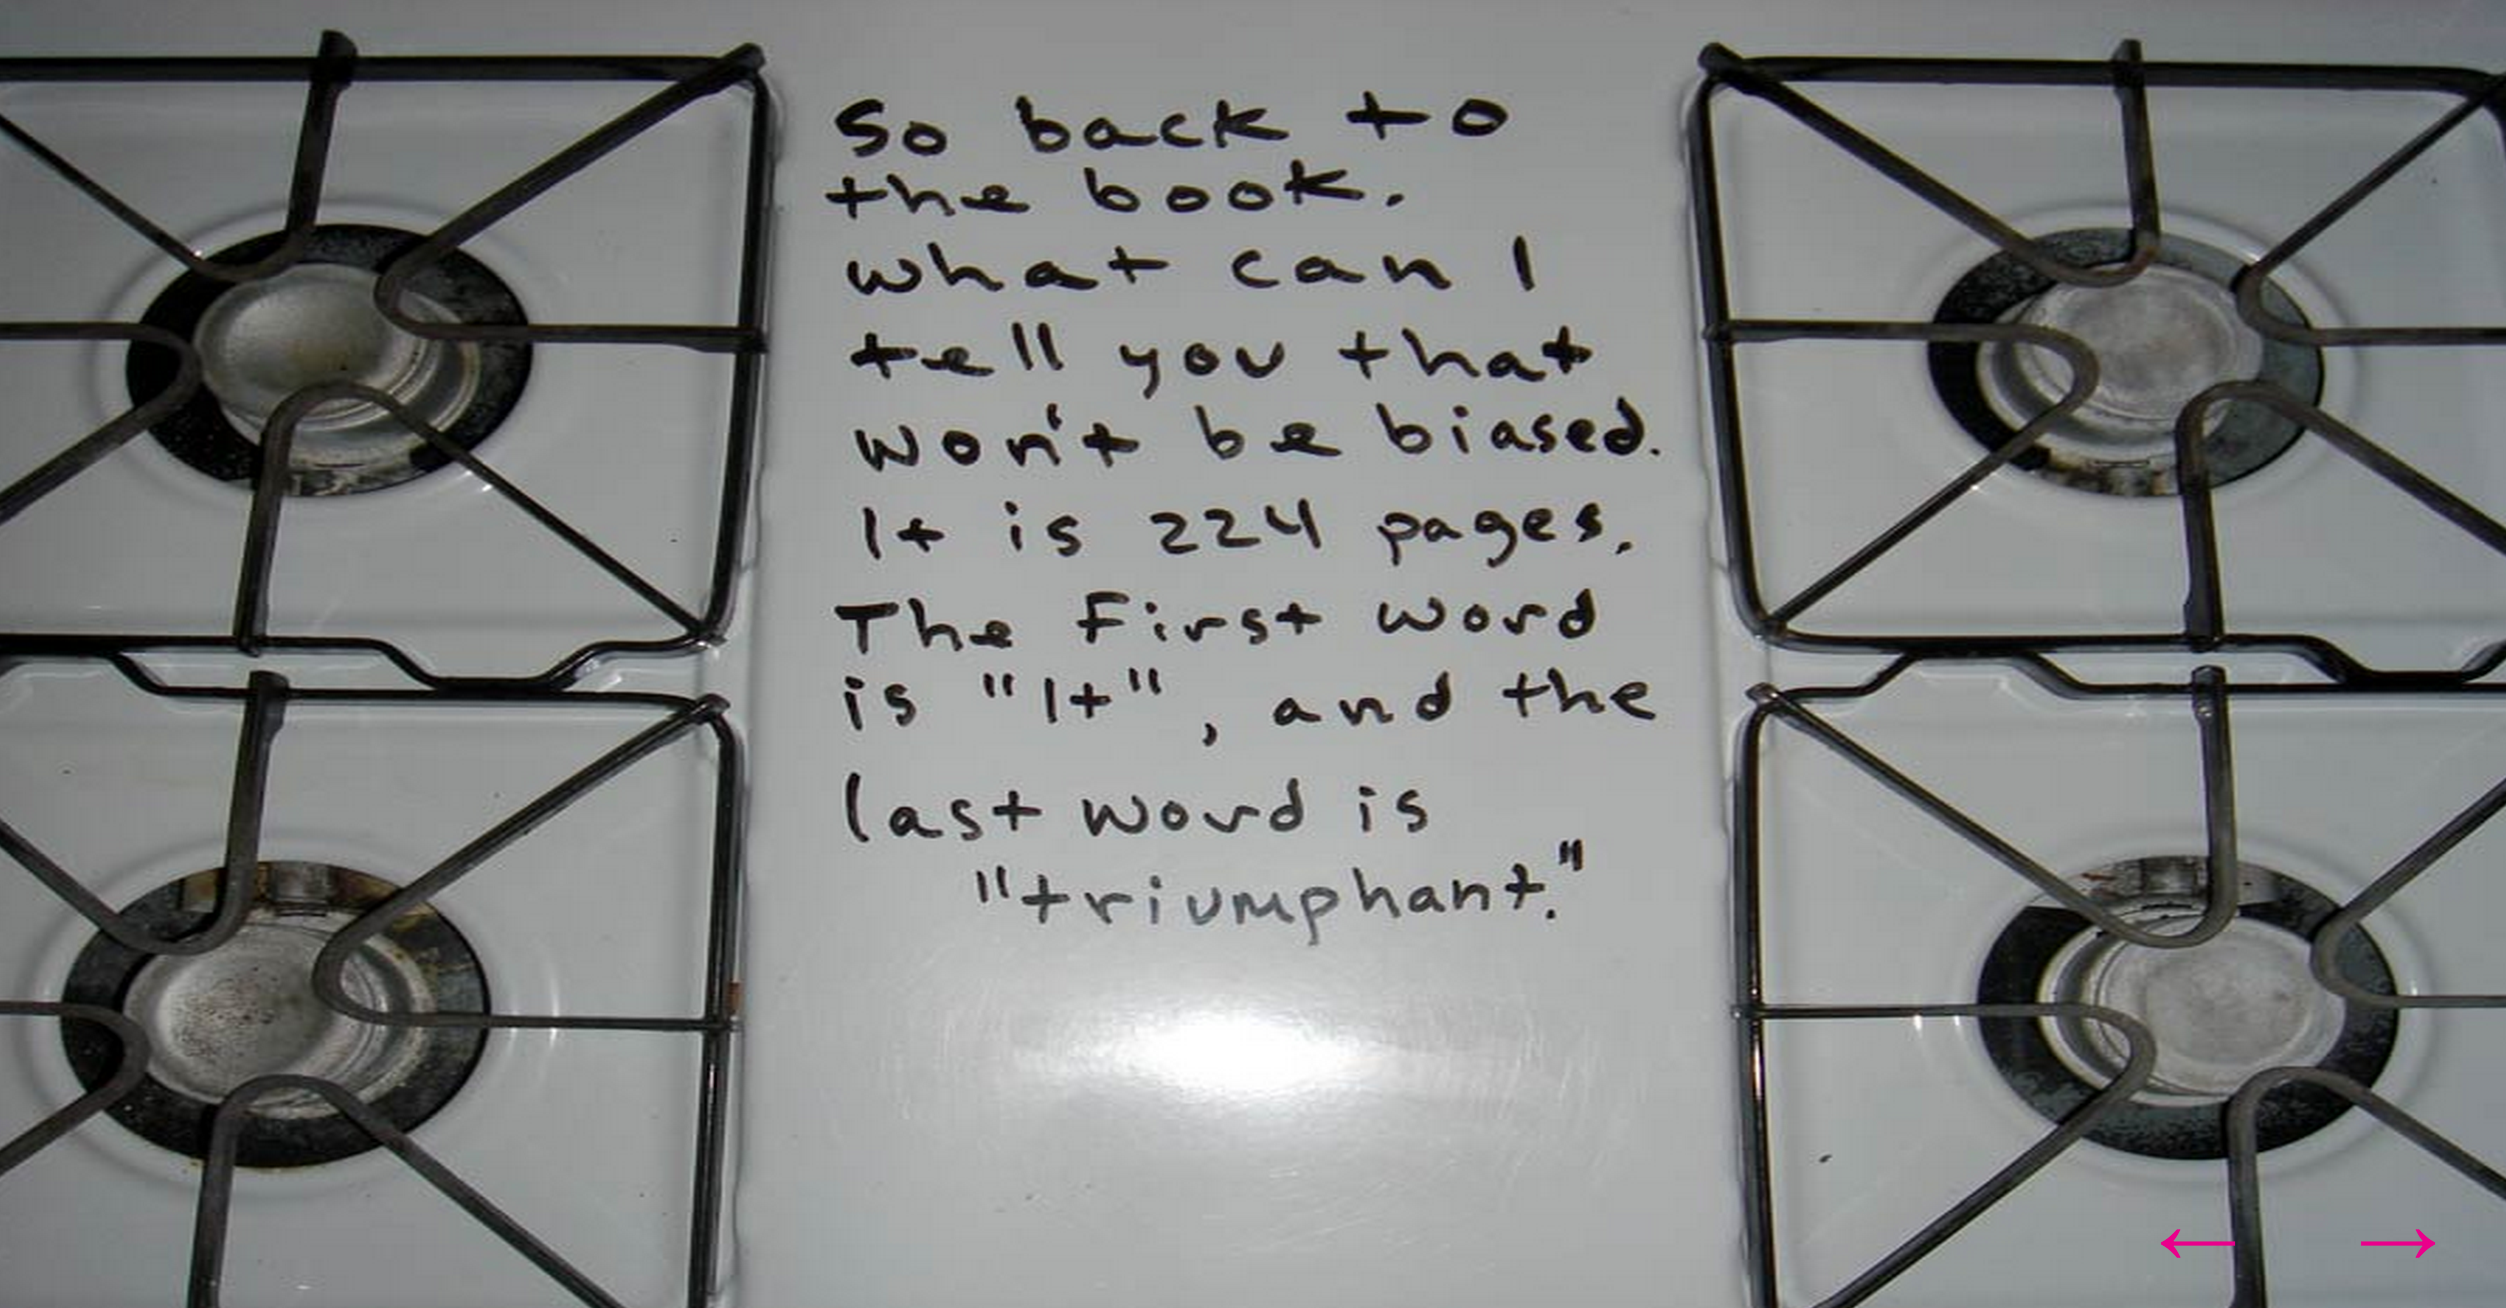 So back to
the book.
What can I
tell you that
won't be biased.
It is 224 pages.
The first word
is "It", and the
last word is
"triumphant."